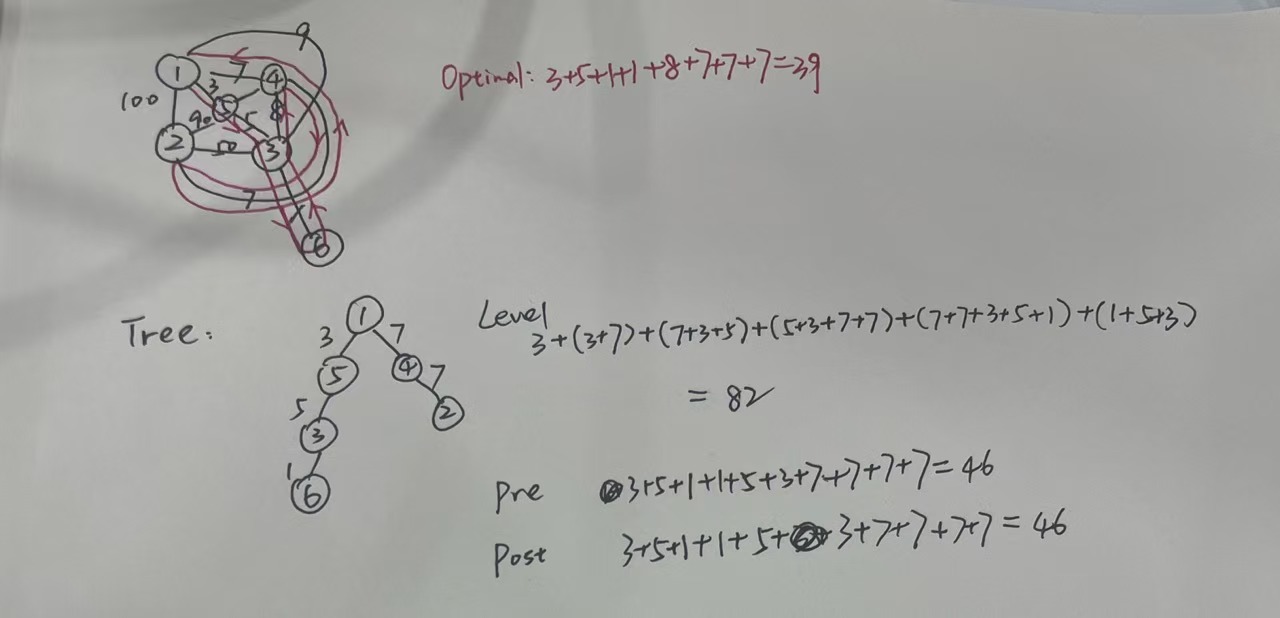 9
1 7 4
3
100
5
90 5 8
2 50 3
7
1
6
Optimal: 3+5+1+1+8+7+7+7=39
Tree:
1
3 7
5 4 7
5 2
3
1
6
Level
3+(3+7)+(7+3+5)+(5+3+7+7)+(7+7+3+5+1)+(1+5+3)
= 82
Pre 3+5+1+1+5+3+7+7+7+7=46
Post 3+5+1+1+5+3+7+7+7+7=46